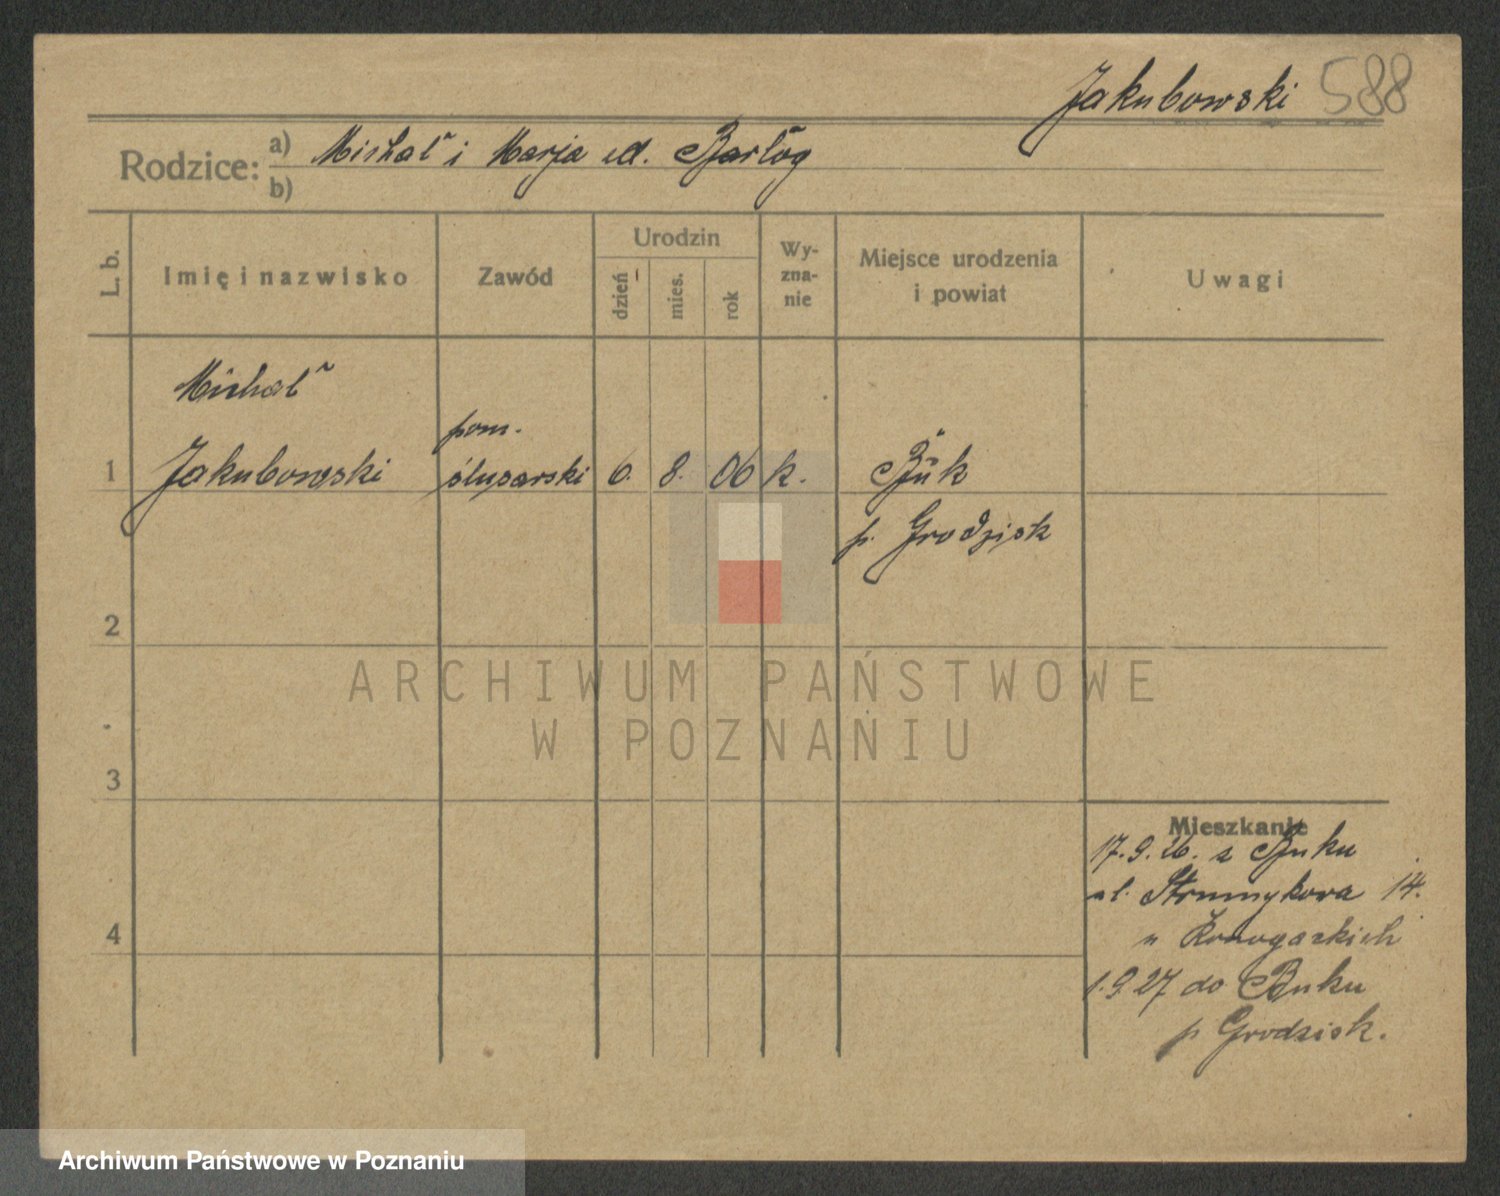 Jakubowski 588
Rodzice: a) Michał i Marja ud. Barłóg
b)
L. b.
Imię i nazwisko
Zawód
Urodzin
dzień
mies.
rok
Wy-
zna-
nie
Miejsce urodzenia
i powiat
Uwagi
Michał
pom.
1 Jakubowski ślusarski 6. 8. 06 k. Buk
p. Grodzisk
2
ARCHIWUM PAŃSTWOWE
W POZNANIU
3
Mieszkanie
17.9.26. z Buku
ul. Strumykowa 14.
u
4
1.9.27 do Buku
p Grodzisk.
Archiwum Państwowe w Poznaniu